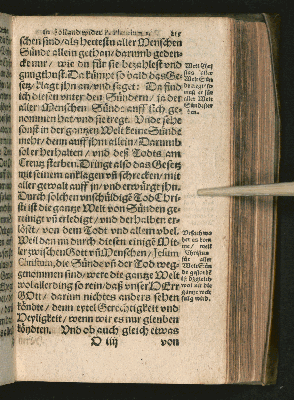 schen sind/als hettestu aller Menschen
Sünde allein gethan/darumb geden-
cke nur/ wie du für sie bezahlest vnd
gnug thust. Da kümpt so bald das Ge-
setz/klagt ihn an/vnd saget: Da find
ich diesen vnter den Sündern/ ja der
aller Menschen Sünde auff sich ge-
nommen hat/vnd sie tregt. Vnde sehe
sonst in der gantzen Welt keine Sünde
mehr/denn auff ihm allein/Darumb
sol er herhalten/ vnd deß Todts am
Creutz sterben. Dringt also das Gesetz
mit seinem anklagen vñ schrecken/mit
aller gewalt auff jn/vnd erwürgt ihn.
Durch solchen vnschüldigẽ Tod Chri-
sti ist die gantze Welt von Sünden ge-
reiniget vñ erlediget/ vnd derhalben er-
löset/ von dem Todt vnd allem vbel.
Weil denn nu durch diesen einigẽ Mit-
ler zwischen Gott vñ Menschen/Jesum
Christum, die Sünde vñ der Tod weg-
genommen sind/were die gantze Welt
wol allerding so rein/daß vnser HErr
GOtt/ darinn nichts anders sehen
köndte/ denn eytel Gerechtigkeit vnd
Heyligkeit/ wenn wir es nur gleuben
köndten. Vnd ob auch gleich etwas
D iiij von
aller
Welt
Christus
für aller
gantze